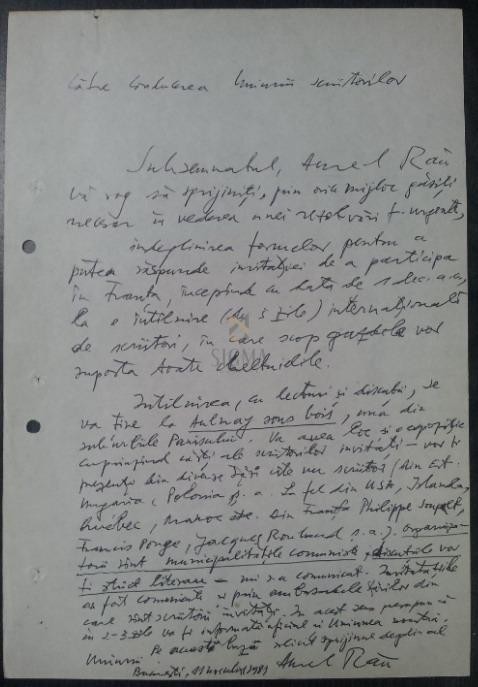 Către Conducerea Uniunii scriitorilor
Subsemnatul, Aurel Rău
vă rog să sprijiniți, prin orice mijloc găsiți
necesar în vederea unei rezolvări f. urgente,
îndeplinirea formelor pentru a
putea răspunde invitației de a participa
în Franța, începând cu data de 1 dec. a.c.
la o întâlnire (de 3 zile) internațională
de scriitori, în care scop gazdele vor
suporta toate cheltuielile.
SIGMA
Întîlnirea, cu lecturi și discuții, se
va ține la Aulnay sous bois, una din
suburbiile Parisului. Va avea loc și o expoziție
cuprinzând cărți ale scriitorilor invitați – vor fi
prezenți din diverse țări câte un scriitor (din
Ungaria, Polonia ș. a. La fel din USA, Islanda,
Québec, Maroc etc. Din Franța Philippe Soupault,
Francis Ponge, Jacques Roubaud ș. a.). Organiza-
torii sînt municipalitățile comuniste, discuțiile vor
fi strict literare – mi s-a comunicat. Invitațiile
au fost comunicate și prin ambasadele țărilor din
care sînt scriitorii invitați. În acest sens
în 2-3 zile va fi informată oficial și Uniunea noastră.
Pe această bază solicit sprijinul deplin al
Uniunii. Aurel Rău
București, 11 noiembrie 1983